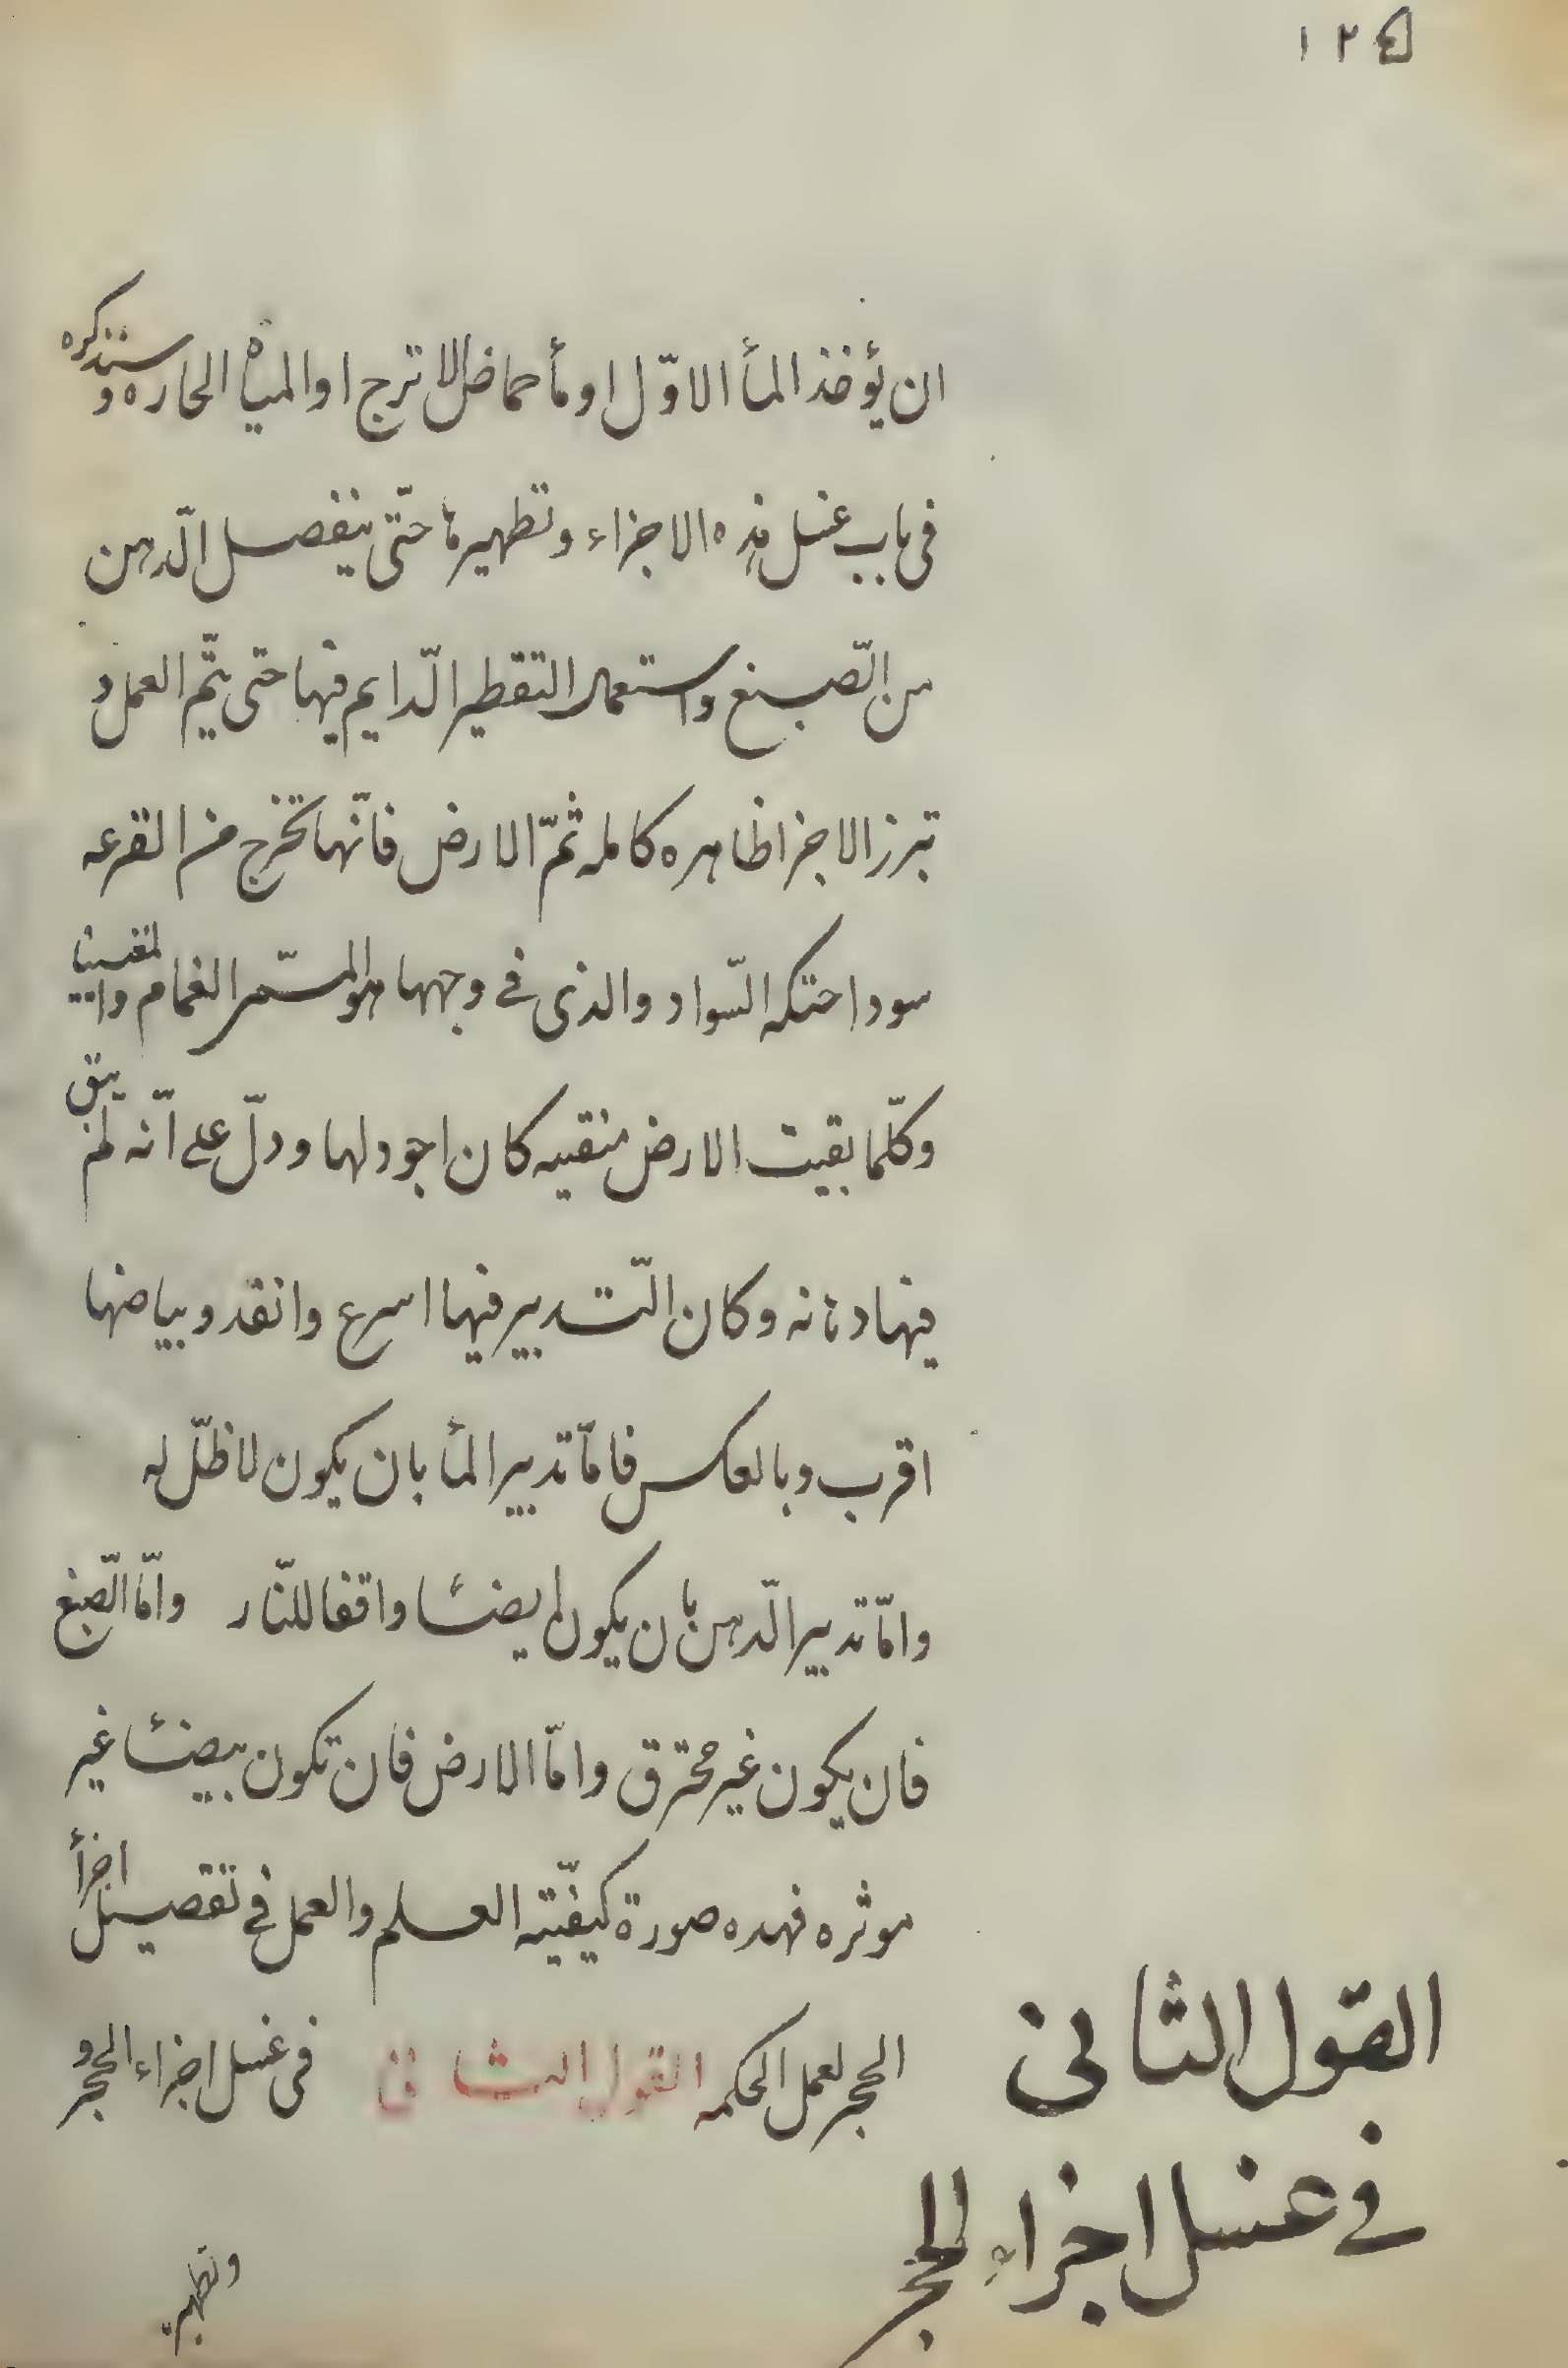 ١٢٤
ان يؤخذ المأ الاوّل او مأ حماض الاترج او المياه الحاره وسنذكره
فى باب غسل هذه الاجزاء وتطهيرها حتّى ينفصل الّدهن
من الّصبغ واستعمال التقطير الّدايم فيها حتى يتّم العمل و
تبرز الاجزا ظاهره كامله ثمّ الارض فانّها تخرج من القرعه
سودا حتكه السّواد والذى فى وجهها هو المسّمر الغمام وا
وكلّما بقيت الارض منقيه كان اجود لها ودلّ على انّه لم يبق
فيها دهانه وكان الّتدبير فيها اسرع وانقد وبياضها
اقرب وبالعكس فامّا تدبير المأ بان يكون لا ظلّ له
وامّا تدبير الّدهن بان يكون ابيضا واقفا للنّار وامّا الّصبغ
فان يكون غير محترق وامّا الارض فان تكون بيضأ غير
موثره فهده صورة كيفيّته العلم والعمل فى تفصيل اجزأ
الحجر لعمل الحكمه القول الثانى فى غسل اجزاء الحجر و
القول الثانى
فى غسل اجزاء الحجر
وتطهير